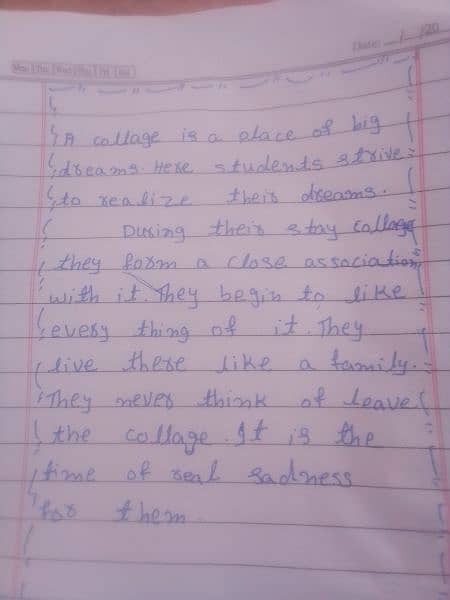 Date: __/__/20
A collage is a place of big
dreams. Here students strive
to realize their dreams.
During their stay collage
they form a close association
with it. They begin to like
every thing of it. They
live there like a family.
They never think of leave
the collage. It is the
time of real sadness
for them.